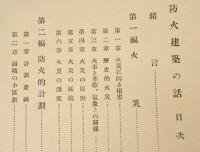 防火建築の話 目次
緒言
第一編 火災
第一章 火災に因る損害
第二章 歴史的火災
第三章 火事と季節、気象との関係
第四章 火災の原因
第五章 火災の延焼
第六章 火災の温度
第二編 防火的計劃
第一章 計劃要綱
第二章 面積の小区劃